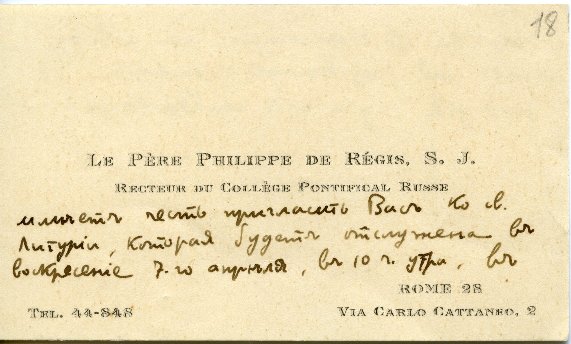 18
LE PÈRE PHILIPPE DE RÉGIS, S. J.
RECTEUR DU COLLÈGE PONTIFICAL RUSSE
имѣетъ честь пригласить Васъ ко св.
Литургіи, которая будетъ отслужена въ
воскресеніе 7-го апрѣля, въ 10 ч. утра, въ
ROME 28
TEL. 44-848
VIA CARLO CATTANEO, 2